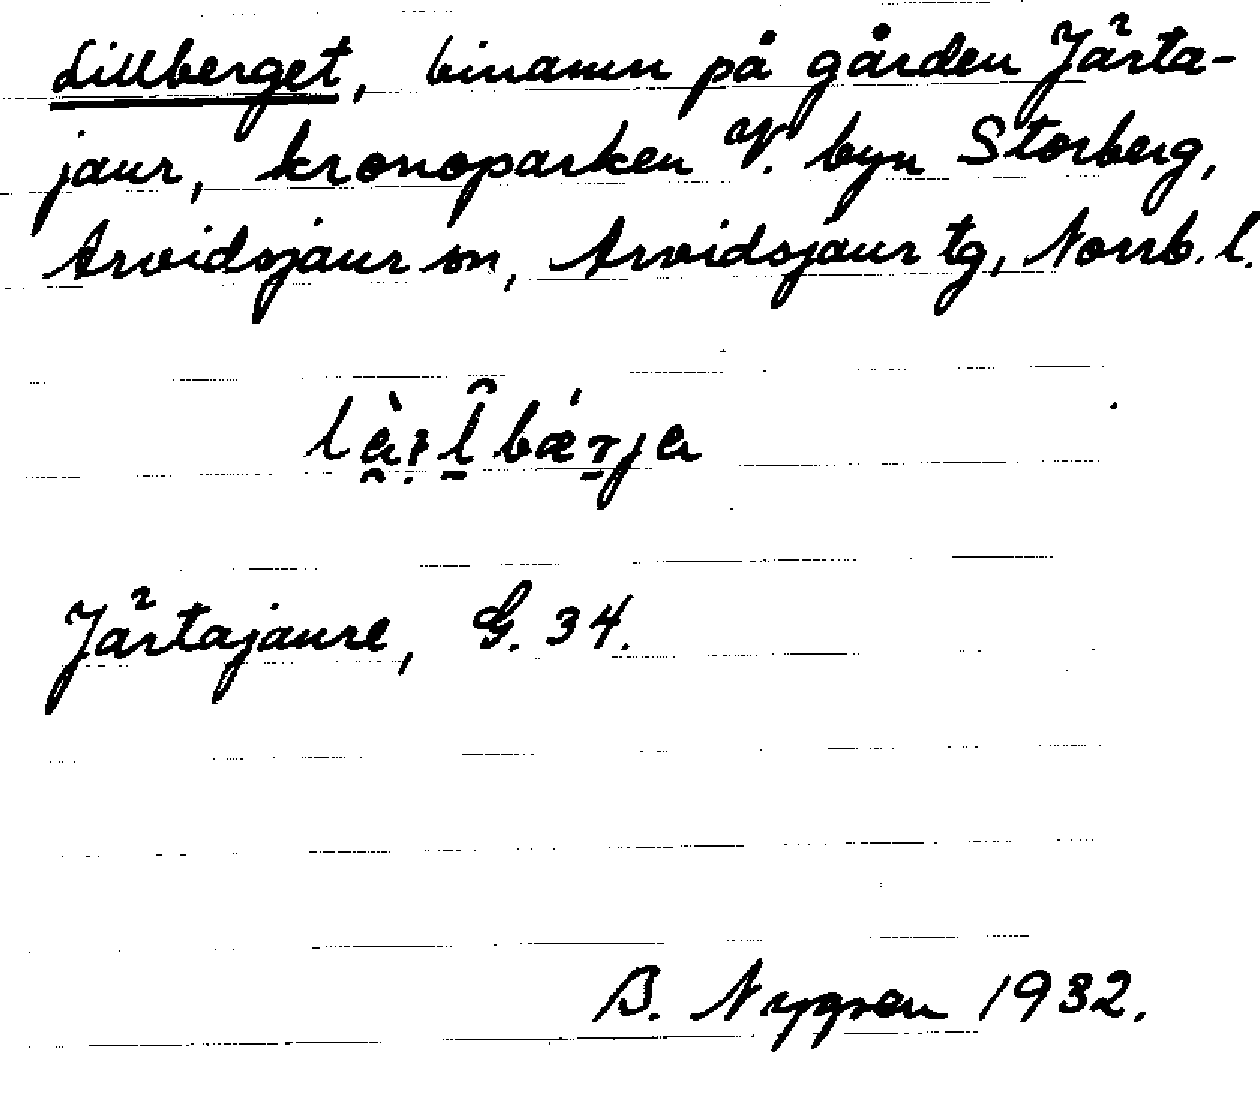 Lillberget, binamn på gården Järta-
jaur, kronoparken V. byn Storberg,
Arvidsjaur sn, Arvidsjaur tg, Norrb. l.
Järtajaure, G. 34.
B. Nygren 1932.